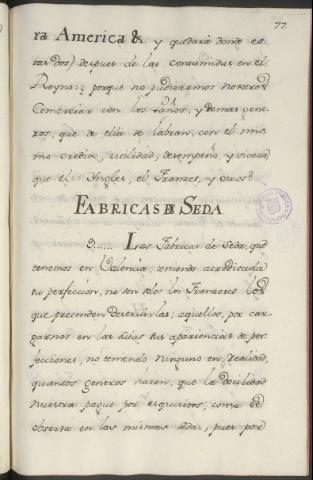 77.
ra America &. y quedará donde es-
tan dos) despues de las consumidas en el
Reyno: porque no pudieramos nosotros
Comerciar con los Paños, y demas gene-
ros, que de ella se labran, con el mis-
mo credito, utilidad, desempeño, y viveza
que el Ingles, el Franzes, y otros?
FABRICAS DE SEDA
9...... Las Fabricas de Seda, que
tenemos en Valencia, teniendo acreditada
su perfeccion, no son solos los Franzeses los
que pretenden destruirlas; aquellos, por car-
garnos en las suias sus apariencias de per-
fecciones, no teniendo ninguno en realidad,
quantos generos hazen, que la docilidad
nuestra paque por exquisitos, como se
observa en las mismas sedas; pues por